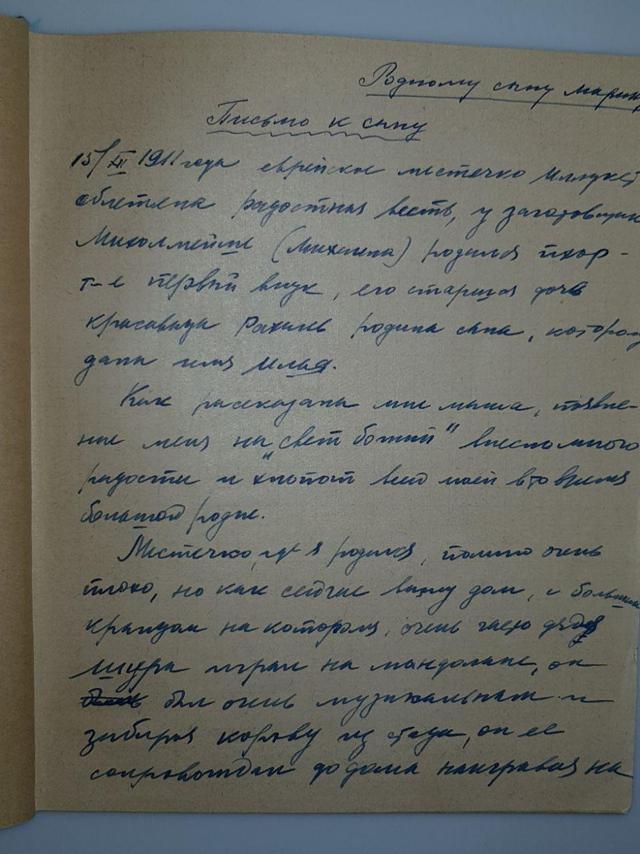 Родному сыну Марик
Письмо к сыну
15/XII 1911 года еврейское местечко Иллукст
облетела радостная весть, у заготовщика
Михолмейше (Михаила) родился
первый внук, его старшая дочь
красавица Рахиль родила сына, котором
дали имя Илья.
Как рассказала мне мама, появле-
ние меня на "свет божий" внесло много
радости и хлопот всей моей в то время
большой родне.
Местечко, где я родился, помню очень
плохо, но как сейчас вижу дом, с большим
крыльцом на котором, очень часто дядя
Шура играл на мандолине, он
был очень музыкальным и
забирая корову из стада, он ее
сопровождал до дома наигрывая на